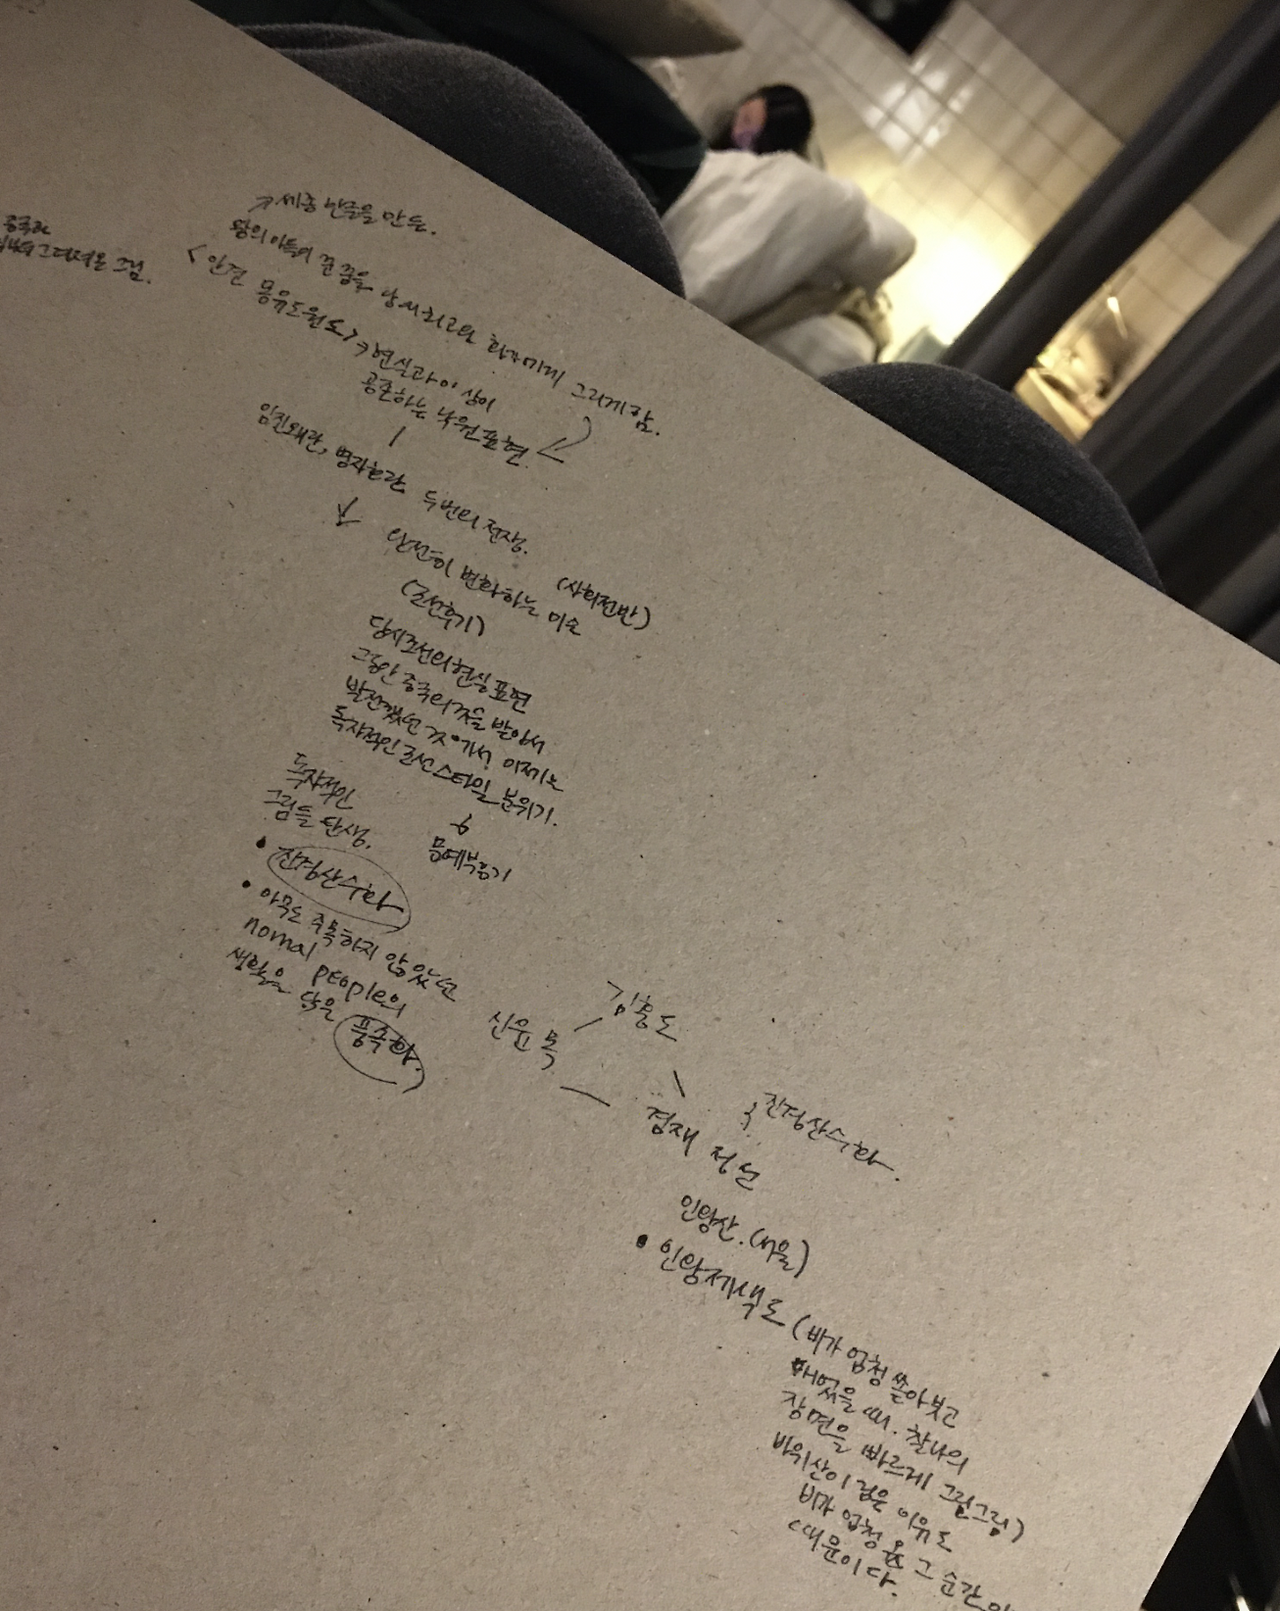 중국과
그려져온 그림.
↗세종 만들.
왕의 아들이 꾼 꿈을 당시 최고의 화가에게 그리게 함.
<안견 몽유도원도> → 현실과 이상이
공존하는 낙원 표현.
임진왜란, 병자호란 두번의 전쟁.
↓ 완전히 변화하는 미술 (사회전반)
(조선후기)
당시조선의 현실 표현
그동안 중국의 것을 받아서
발전했던 것에서 이제는
독자적인 조선 스타일 분위기.
↓
문예부흥기
독자적인
그림들 탄생.
• 진경산수화
• 아무도 주목하지 않았던
nomal people의
생활을 담은 풍속화.
신윤복 — 김홍도
겸재 정선
진경산수화.
인왕산. (서울)
• 인왕제색도 (비가 엄청 쏟아붓고
개었을 때. 찰나의
장면을 빠르게 그린그림)
바위산이 검은 이유도
비가 엄청 온 그 순간이
때문이다.